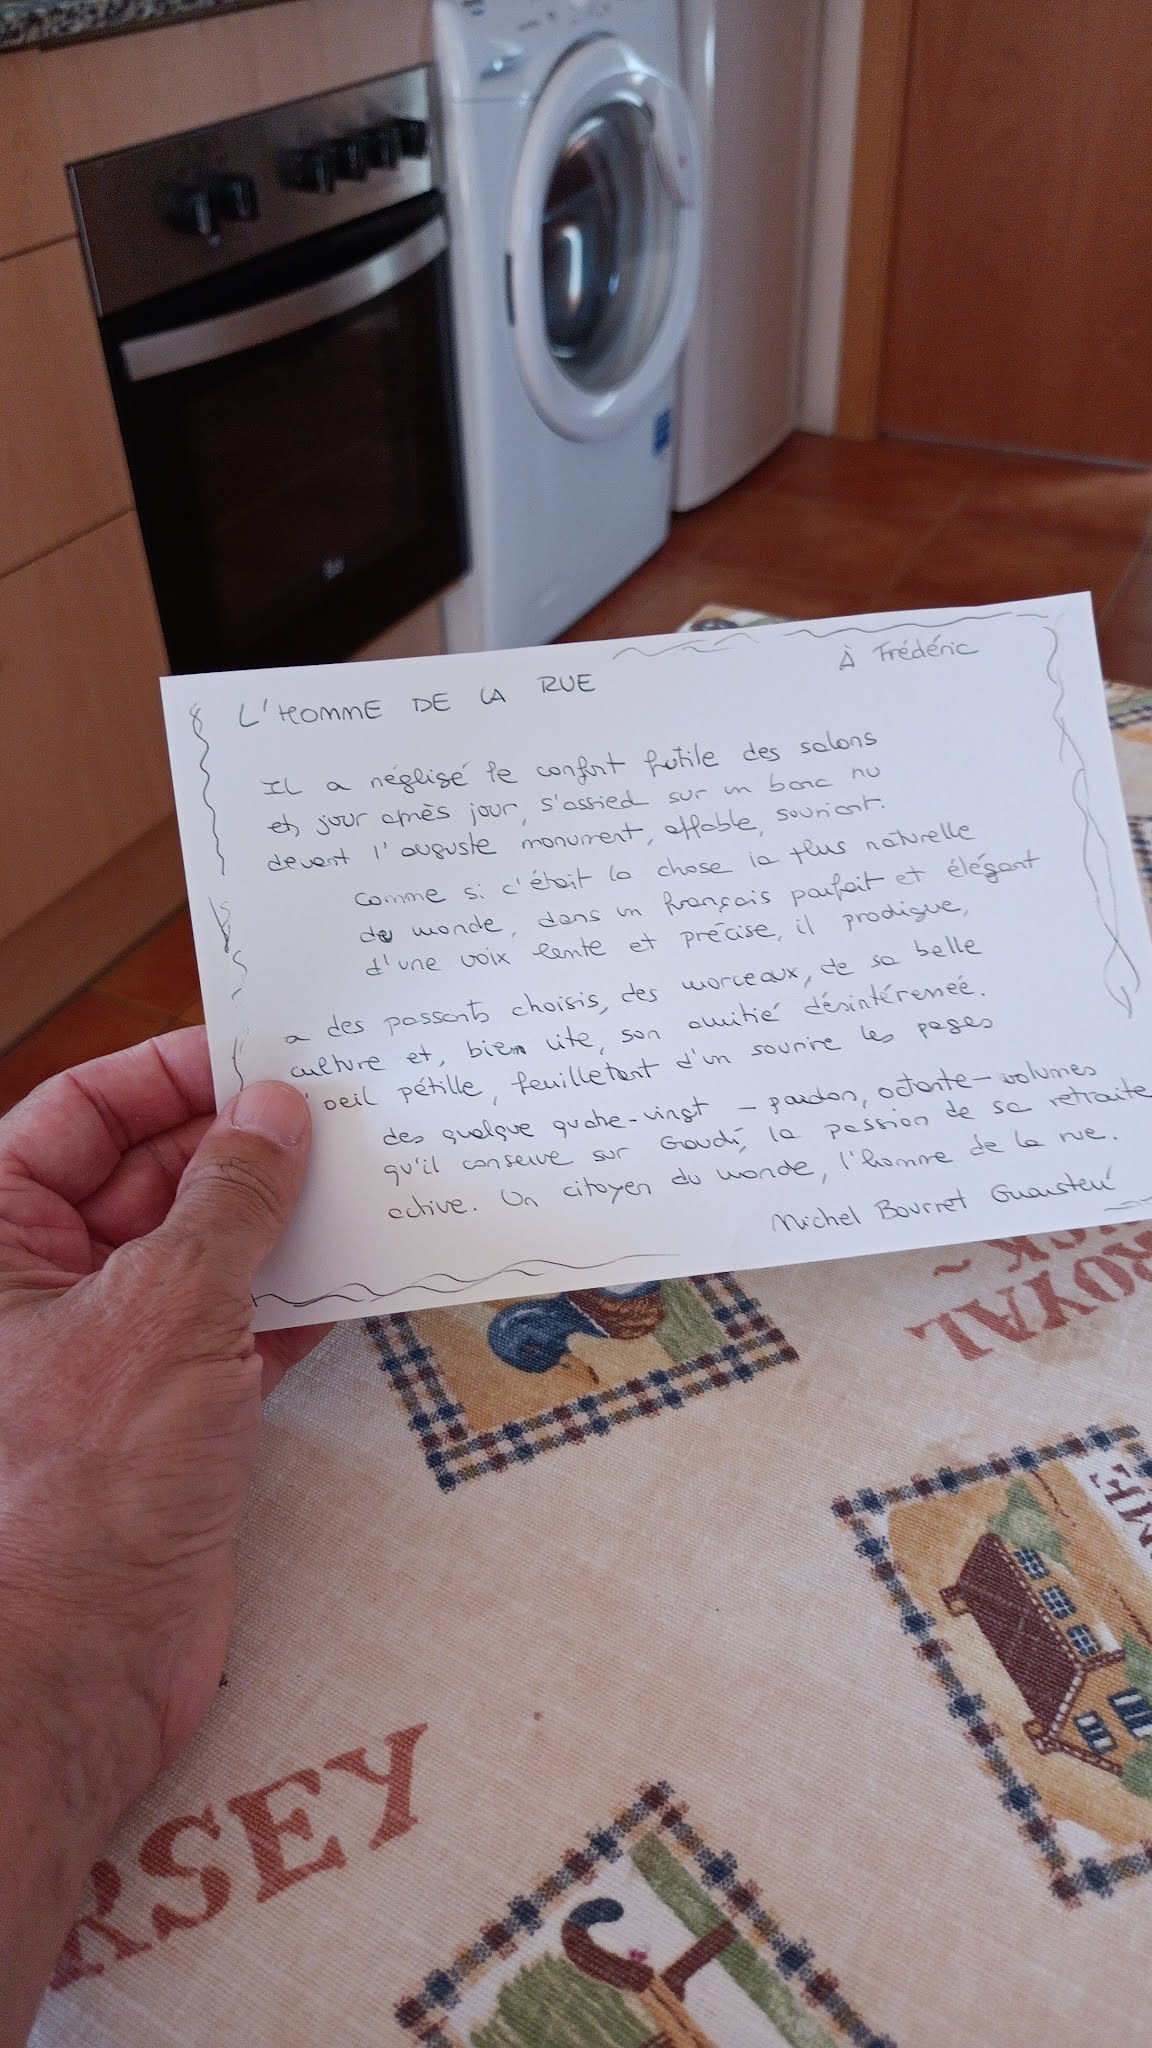 L'HOMME DE LA RUE
À Frédéric
Il a négligé le confort futile des salons
et, jour après jour, s'assied sur un banc nu
devant l'auguste monument, affable, souriant.
Comme si c'était la chose la plus naturelle
du monde, dans un français parfait et élégant
d'une voix lente et précise, il prodigue,
a des passants choisis, des morceaux, de sa belle
culture et, bien vite, son amitié désintéressée.
oeil pétille, feuilletant d'un sourire les pages
des quelque quatre-vingt – pardon, octante – volumes
qu'il conserve sur Gaudí, la passion de sa retraite
active. Un citoyen du monde, l'homme de la rue.
Michel Bourret Guasteví
ROYAL
RSEY